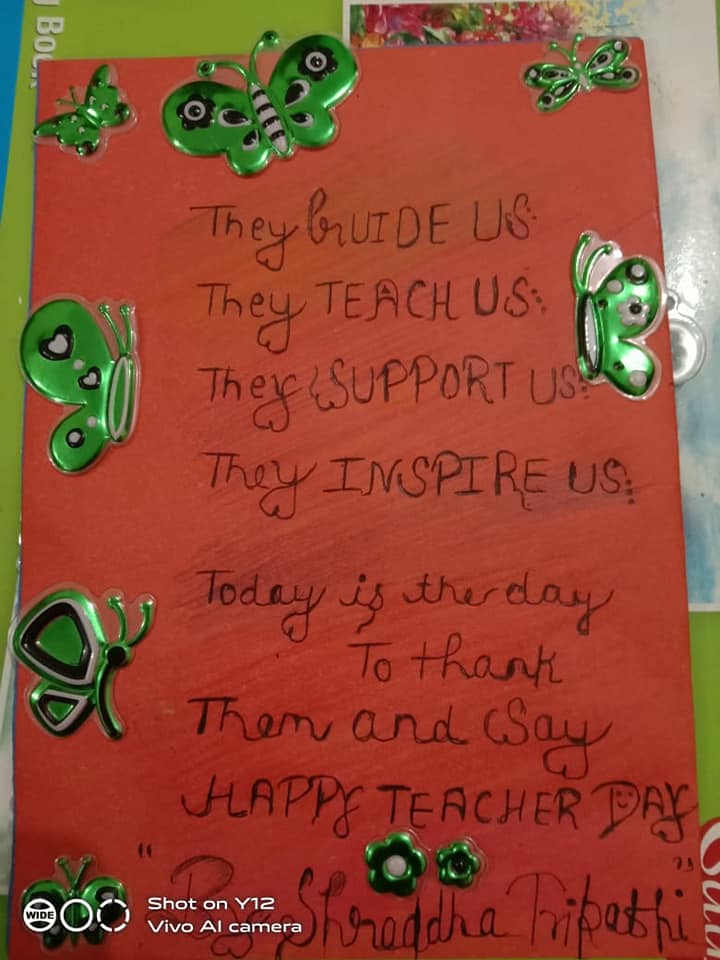 Book
They GUIDE US
They TEACH US
They SUPPORT US
They INSPIRE US
Today is the day
To thank
Them and Say
HAPPY TEACHER DAY
" By Shraddha Tripathi "
WIDE
Shot on Y12
Vivo AI camera